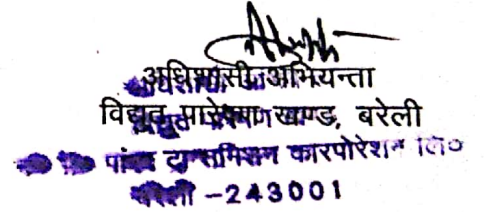 अधिशासी अभियन्ता
विद्युत पारेषण खण्ड, बरेली
पावर ट्रान्समिशन कारपोरेशन लि०
बरेली -243001